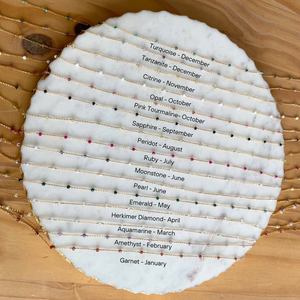 Turquoise - December
Tanzanite - December
Citrine - November
Opal - October
Pink Tourmaline- October
Sapphire - September
Peridot - August
Ruby - July
Moonstone - June
Pearl - June
Emerald - May
Herkimer Diamond- April
Aquamarine - March
Amethyst - February
Garnet - January